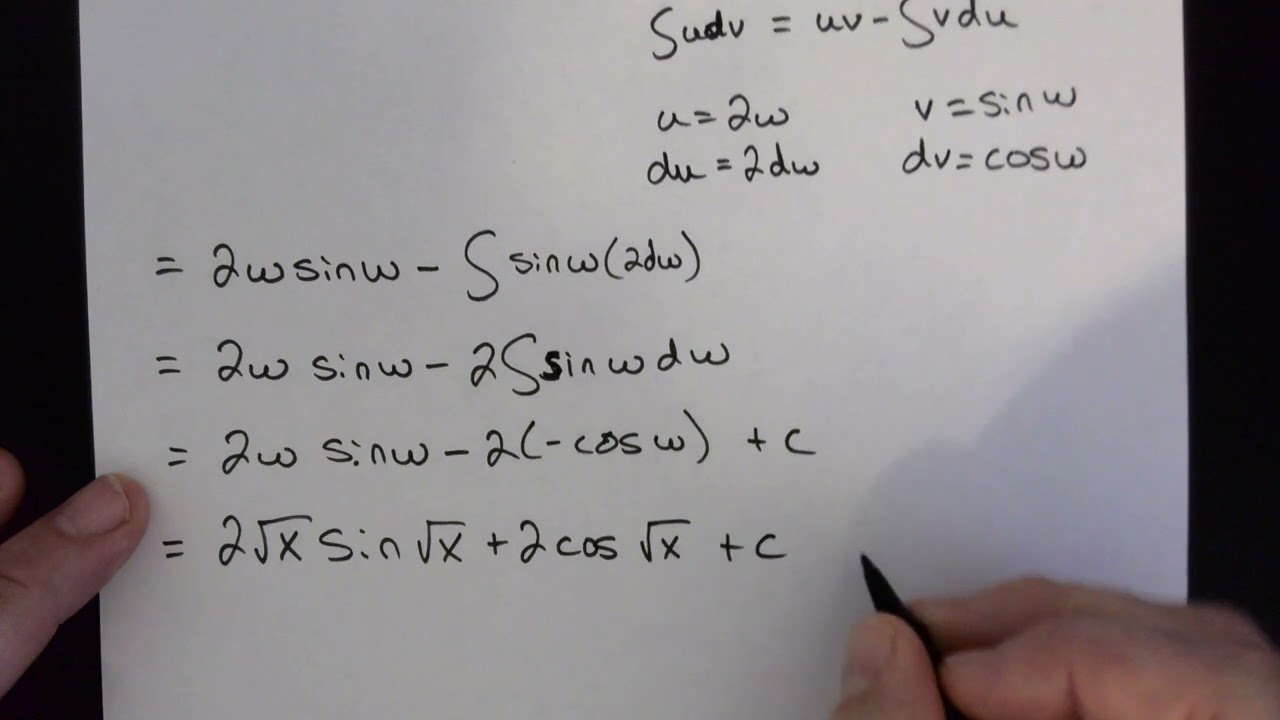 ∫udv = uv - ∫vdu
u = 2w v = sin w
du = 2dw dv = cosw
= 2w sinw - ∫ sinw(2dw)
= 2w sinw - 2∫sinw dw
= 2w sinw - 2(-cosw) + c
= 2√x sin√x + 2cos √x + c